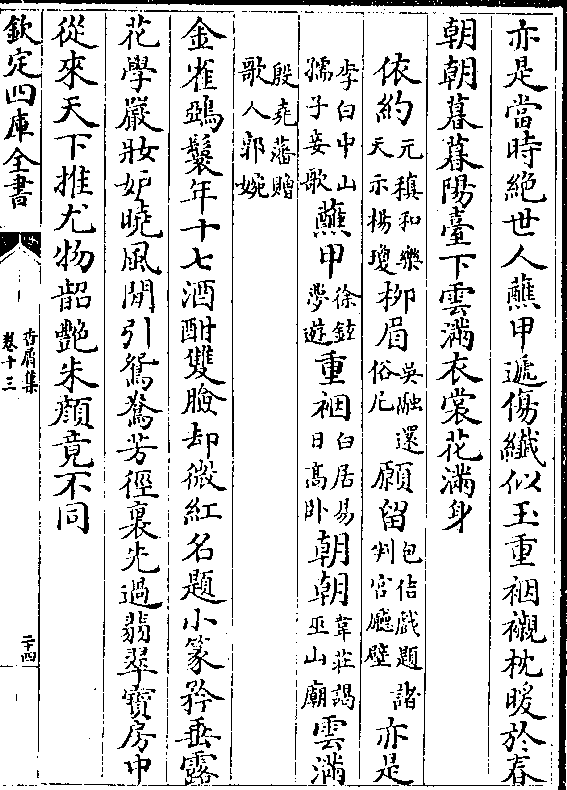 亦是當時絶世人蘸甲遞傷纎似玉重裀襯枕暖於春
朝朝暮暮陽臺下雲滿衣裳花滿身
依約元稹和樂天示楊瓊柳眉吳融還俗尼願留包佶戲題諸判官廳壁亦是
李白中山孺子妾歌蘸甲徐鉉夢遊重裀白居易日高卧朝朝韋莊謁巫山廟雲滿
殷堯藩贈歌人郭婉
金雀鵶鬟年十七酒酣雙臉却微紅名題小篆矜垂露
花學嚴妝妒曉風閒引鴛鴦芳徑裏先過翡翠寳房中
從來天下推尤物韶艶朱顔竟不同
欽定四庫全書
香屑集
卷十三
二十四